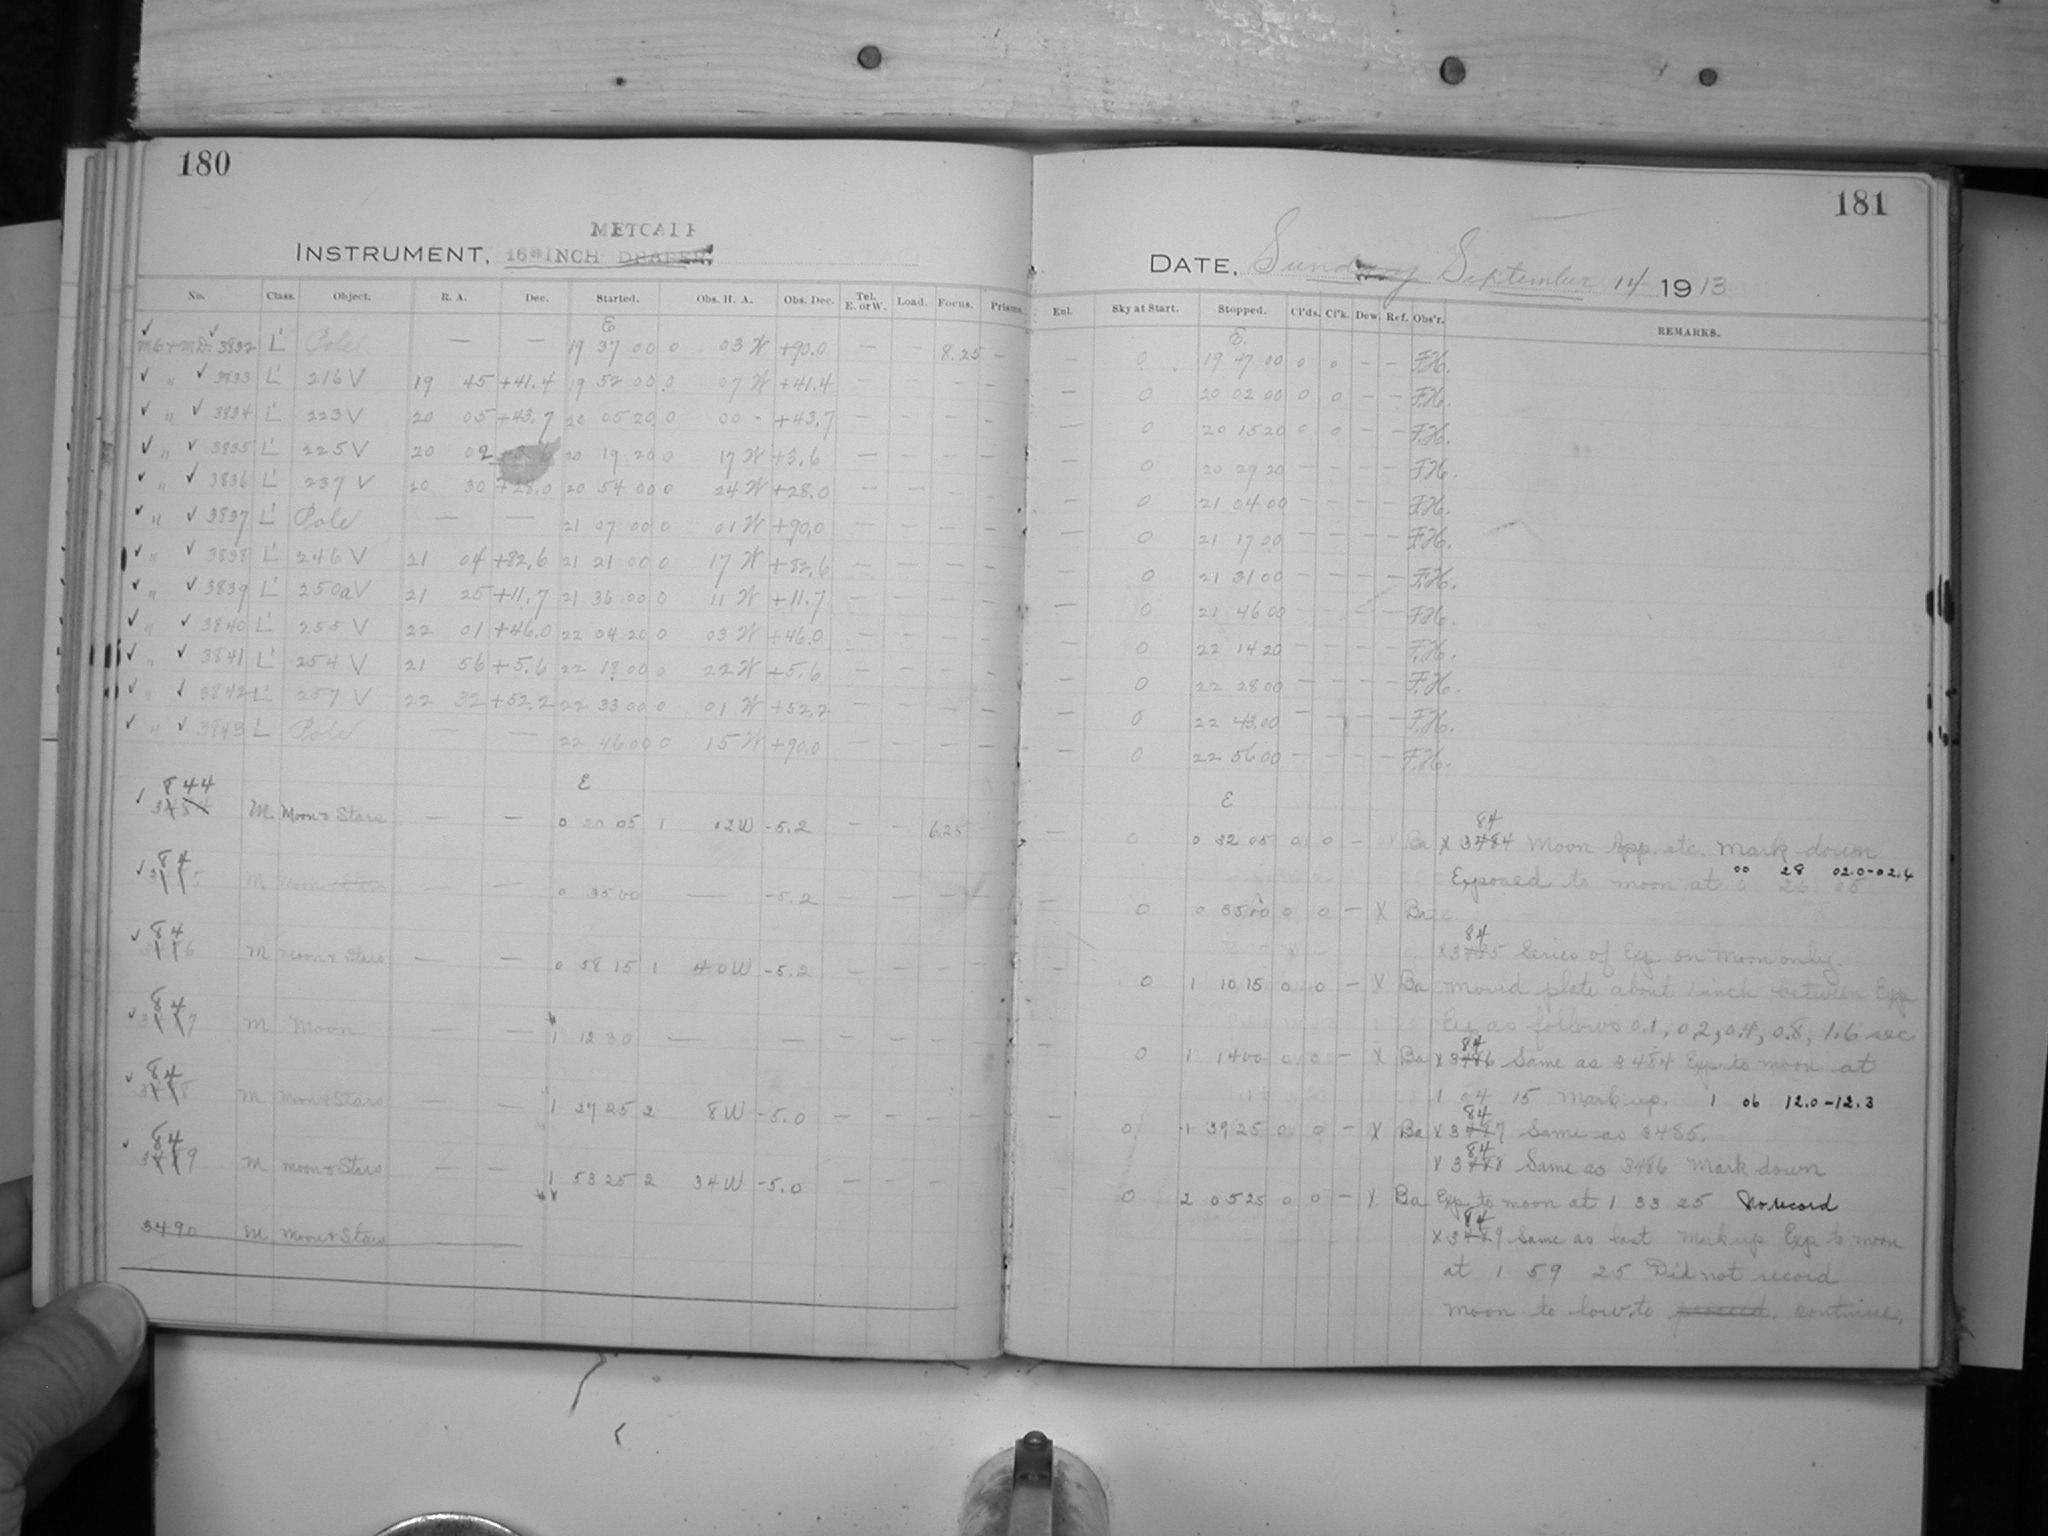 180
METCALF
INSTRUMENT, 16 INCH DRAPER,
No. Class. Object. R. A. Dec. Started. Obs. H. A. Obs. Dec. Tel. E. or W. Load. Focus. Prisms.
E
MC + MD. 3832 L' Pole — — 19 37 00 0 03 W +90.0 — — 8.25 —
" 3833 L' 216 V 19 45 +41.4 19 52 00 0 07 W +41.4 — — — —
" 3834 L' 223 V 20 05 +43.7 20 05 20 0 00 - +43.7 — — — —
" 3835 L' 225 V 20 02 20 19 20 0 17 W +3.6 — — — —
" 3836 L' 237 V 20 30 +28.0 20 54 00 0 24 W +28.0 — — — —
" 3837 L' Pole — — 21 07 00 0 01 W +90.0 — — — —
" 3838 L' 246 V 21 04 +82.6 21 21 00 0 17 W +82.6 — — — —
" 3839 L' 250a V 21 25 +11.7 21 36 00 0 11 W +11.7 — — — —
" 3840 L' 255 V 22 01 +46.0 22 04 20 0 03 W +46.0 — — — —
" 3841 L' 254 V 21 56 +5.6 22 18 00 0 22 W +5.6 — — — —
" 3842 L' 257 V 22 32 +52.2 22 33 00 0 01 W +52.2 — — — —
" 3843 L Pole — — 22 46 00 0 15 W +90.0 — — — —
E
844
M Moon & Stars — — 0 20 05 1 12 W -5.2 — — 6.25 —
84
M Moon & Stars — — 0 35 00 — -5.2 — — — —
84
M Moon & Stars — — 0 58 15 1 40 W -5.2 — — — —
84
M Moon — — 1 12 30 — — — — — —
84
M Moon & Stars — — 1 27 25 2 8 W -5.0 — — — —
84
M Moon & Stars — — 1 53 25 2 34 W -5.0 — — —
3490 M Moon & Stars
181
DATE, Sunday September 14 1913
Enl. Sky at Start. Stopped. Cl'ds. Cl'k. Dew. Ref. Obs'r. REMARKS.
E.
— 0 19 47 00 0 0 — — F.H.
— 0 20 02 00 0 0 — — F.H.
— 0 20 15 20 0 0 — — F.H.
— 0 20 29 20 — — — — F.H.
— 0 21 04 00 — — — — F.H.
— 0 21 17 00 — — — — F.H.
— 0 21 31 00 — — — — F.H.
— 0 21 46 00 — — — — F.H.
— 0 22 14 20 — — — — F.H.
— 0 22 28 00 — — — — F.H.
— 0 22 43 00 — — — — F.H.
— 0 22 56 00 — — — — F.H.
E
84
— 0 0 32 05 0 0 — X Ba X 3484 Moon App. etc. Mark down
00 28 02.0-02.4
Exposed to moon at 0 26 05
— 0 0 35 00 0 0 — X Ba
84
X 3485 Series of Exp on moon only.
— 0 1 10 15 0 0 — X Ba moved plate about 1 inch between Exp
Exp as follows 0.1, 0.2, 0.4, 0.8, 1.6 sec
84
— 0 1 14 00 0 0 — X Ba X 3486 Same as 3484 Exp. to moon at
1 04 15 Mark up. 1 06 12.0-12.3
84
0 1 39 25 0 0 — X Ba X 3487 Same as 3485.
84
X 3488 Same as 3486 Mark down
— 0 2 05 25 0 0 — X Ba Exp to moon at 1 33 25 No record
84
X 3489 Same as last Mark up Exp to moon
at 1 59 25 Did not record
moon to low to proceed. continue.